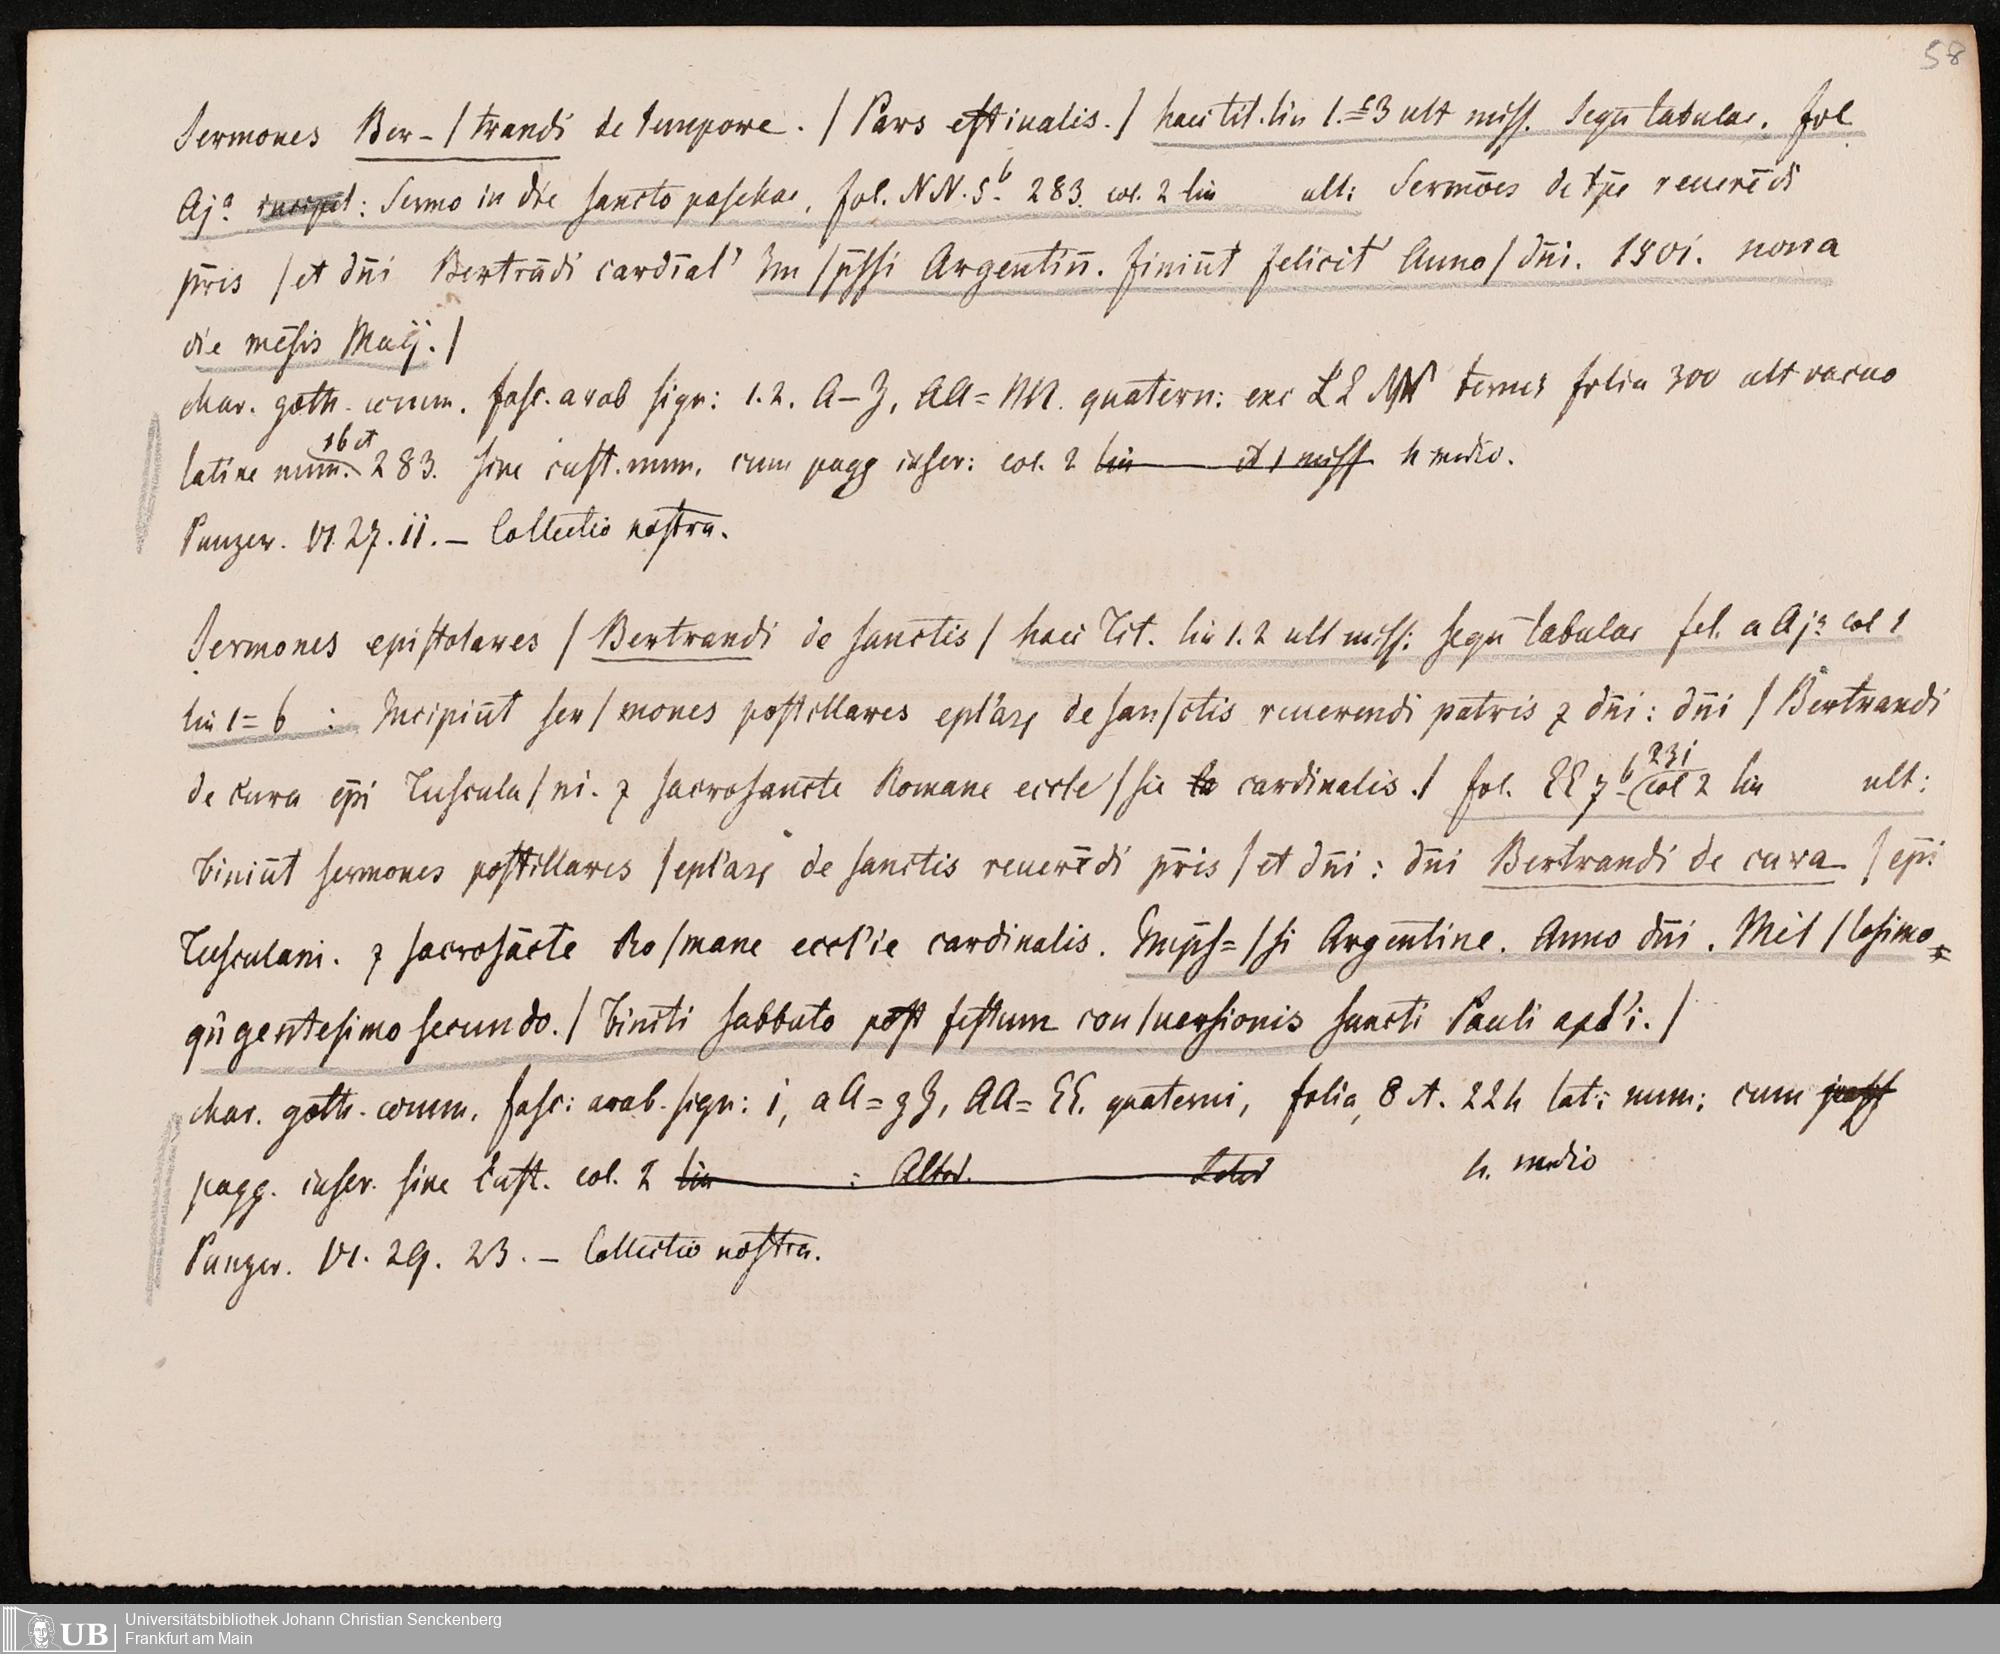 58
Sermones Ber-/trandi de tempore. / Pars estiualis. / haec tit. lin 1.=3 ult miss. Sequ tabulae. fol
Aj.a incipit: Sermo in die sancto paschae, fol. NN.5.b 283. col. 2 lin ult: Sermōes de tp̄e reuerēdi
p̄ris / et dn̄i Bertrādi cardīal' Im/p̄ssi Argentin̄. finiūt felicit Anno / dn̄i. 1501. nona
die mēsis Maij. /
char. goth. comm. fasc. arab sign: 1.2. A–Z, AA= NN. quatern: exc LL MM folia 300 ult vacuo
latine num. 16 et 283. sine cust. num. cum pagg inscr: col. 2 lin et 1 miss h medio.
Panzer. VI. 27. 11. – Collectio nostra.
Sermones epistolares / Bertrandi de sanctis / haec Tit. lin 1. 2 ult miss: sequ tabulae fol. a Aj.a col 1
lin 1= 6 : Incipiūt ser/mones postillares epl'arꝫ de san/ctis reuerendi patris ⁊ dn̄i: dn̄i / Bertrandi
de cura ep̄i Tuscula/ni. ⁊ sacrosancte Romane eccle/sie cardinalis. / fol. EE 7.b 231 (col 2 lin ult:
Finiūt sermones postillares / epl'arꝫ de sanctis reuerēdi p̄ris / et dn̄i: dn̄i Bertrandi de cura / ep̄i
Tusculani. ⁊ sacrosācte Ro/mane eccl'ie cardinalis. Imp̄s=/si Argentine. Anno dn̄i. Mil/lesimo
qn̄gentesimo secundo. / Finiti sabbato post festum con/uersionis sancti Pauli apl'i. /
char. goth. comm. fasc: arab. sign: i, aA= zZ, AA= EE. quaterni, folia, 8 et. 224 lat: num: cum
pagg. inscr. sine cust. col. 2 lin : h. medio
Panzer. VI. 29. 23. – Collectio nostra.
UB
Universitätsbibliothek Johann Christian Senckenberg
Frankfurt am Main